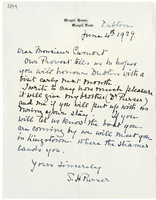 Mespil House,
Mespil Road.
Dublin
June 4th 1929
Dear Monsieur Cumont
Our Provost tells us he hopes
you will honour Dublin with a
visit early next month
I write to say how much pleasure
it will give my brother (Dr Purser)
and me if you will put up with us
during your stay. If you
will let us know the boat you
are coming by we will meet you
in Kingstown where the steamer
lands you.
Yours sincerely
S H Purser